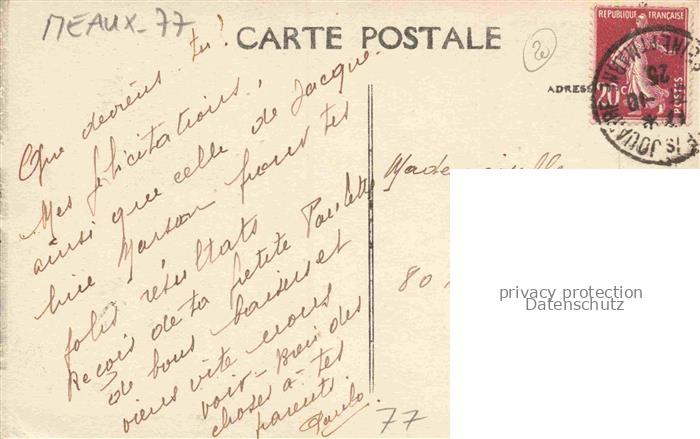 MEAUX-77
CARTE POSTALE
RÉPUBLIQUE FRANÇAISE
20 c
POSTES
ADRESS
JOUARRE
25
Que deviens-tu?
Mes félicitations,
ainsi que celle de Jacque-
line Marson pour tes
jolis résultats
Reçois de ta petite Paulette
de bons baisers et
viens vite nous
voir - Bien des
choses à tes
parents
Paulo
Mademoiselle
80
privacy protection
Datenschutz
77